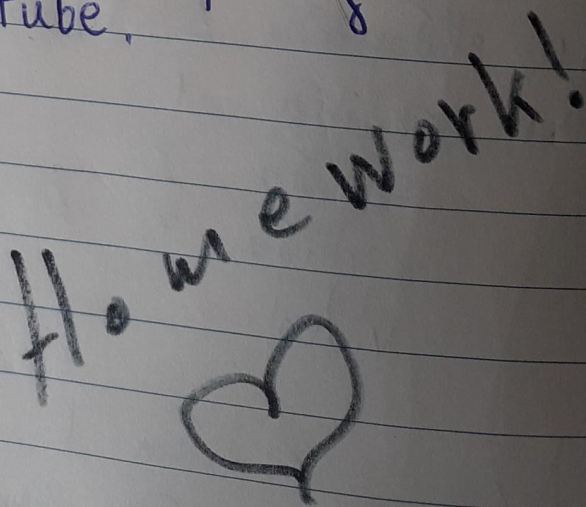 Tube,
Homework!